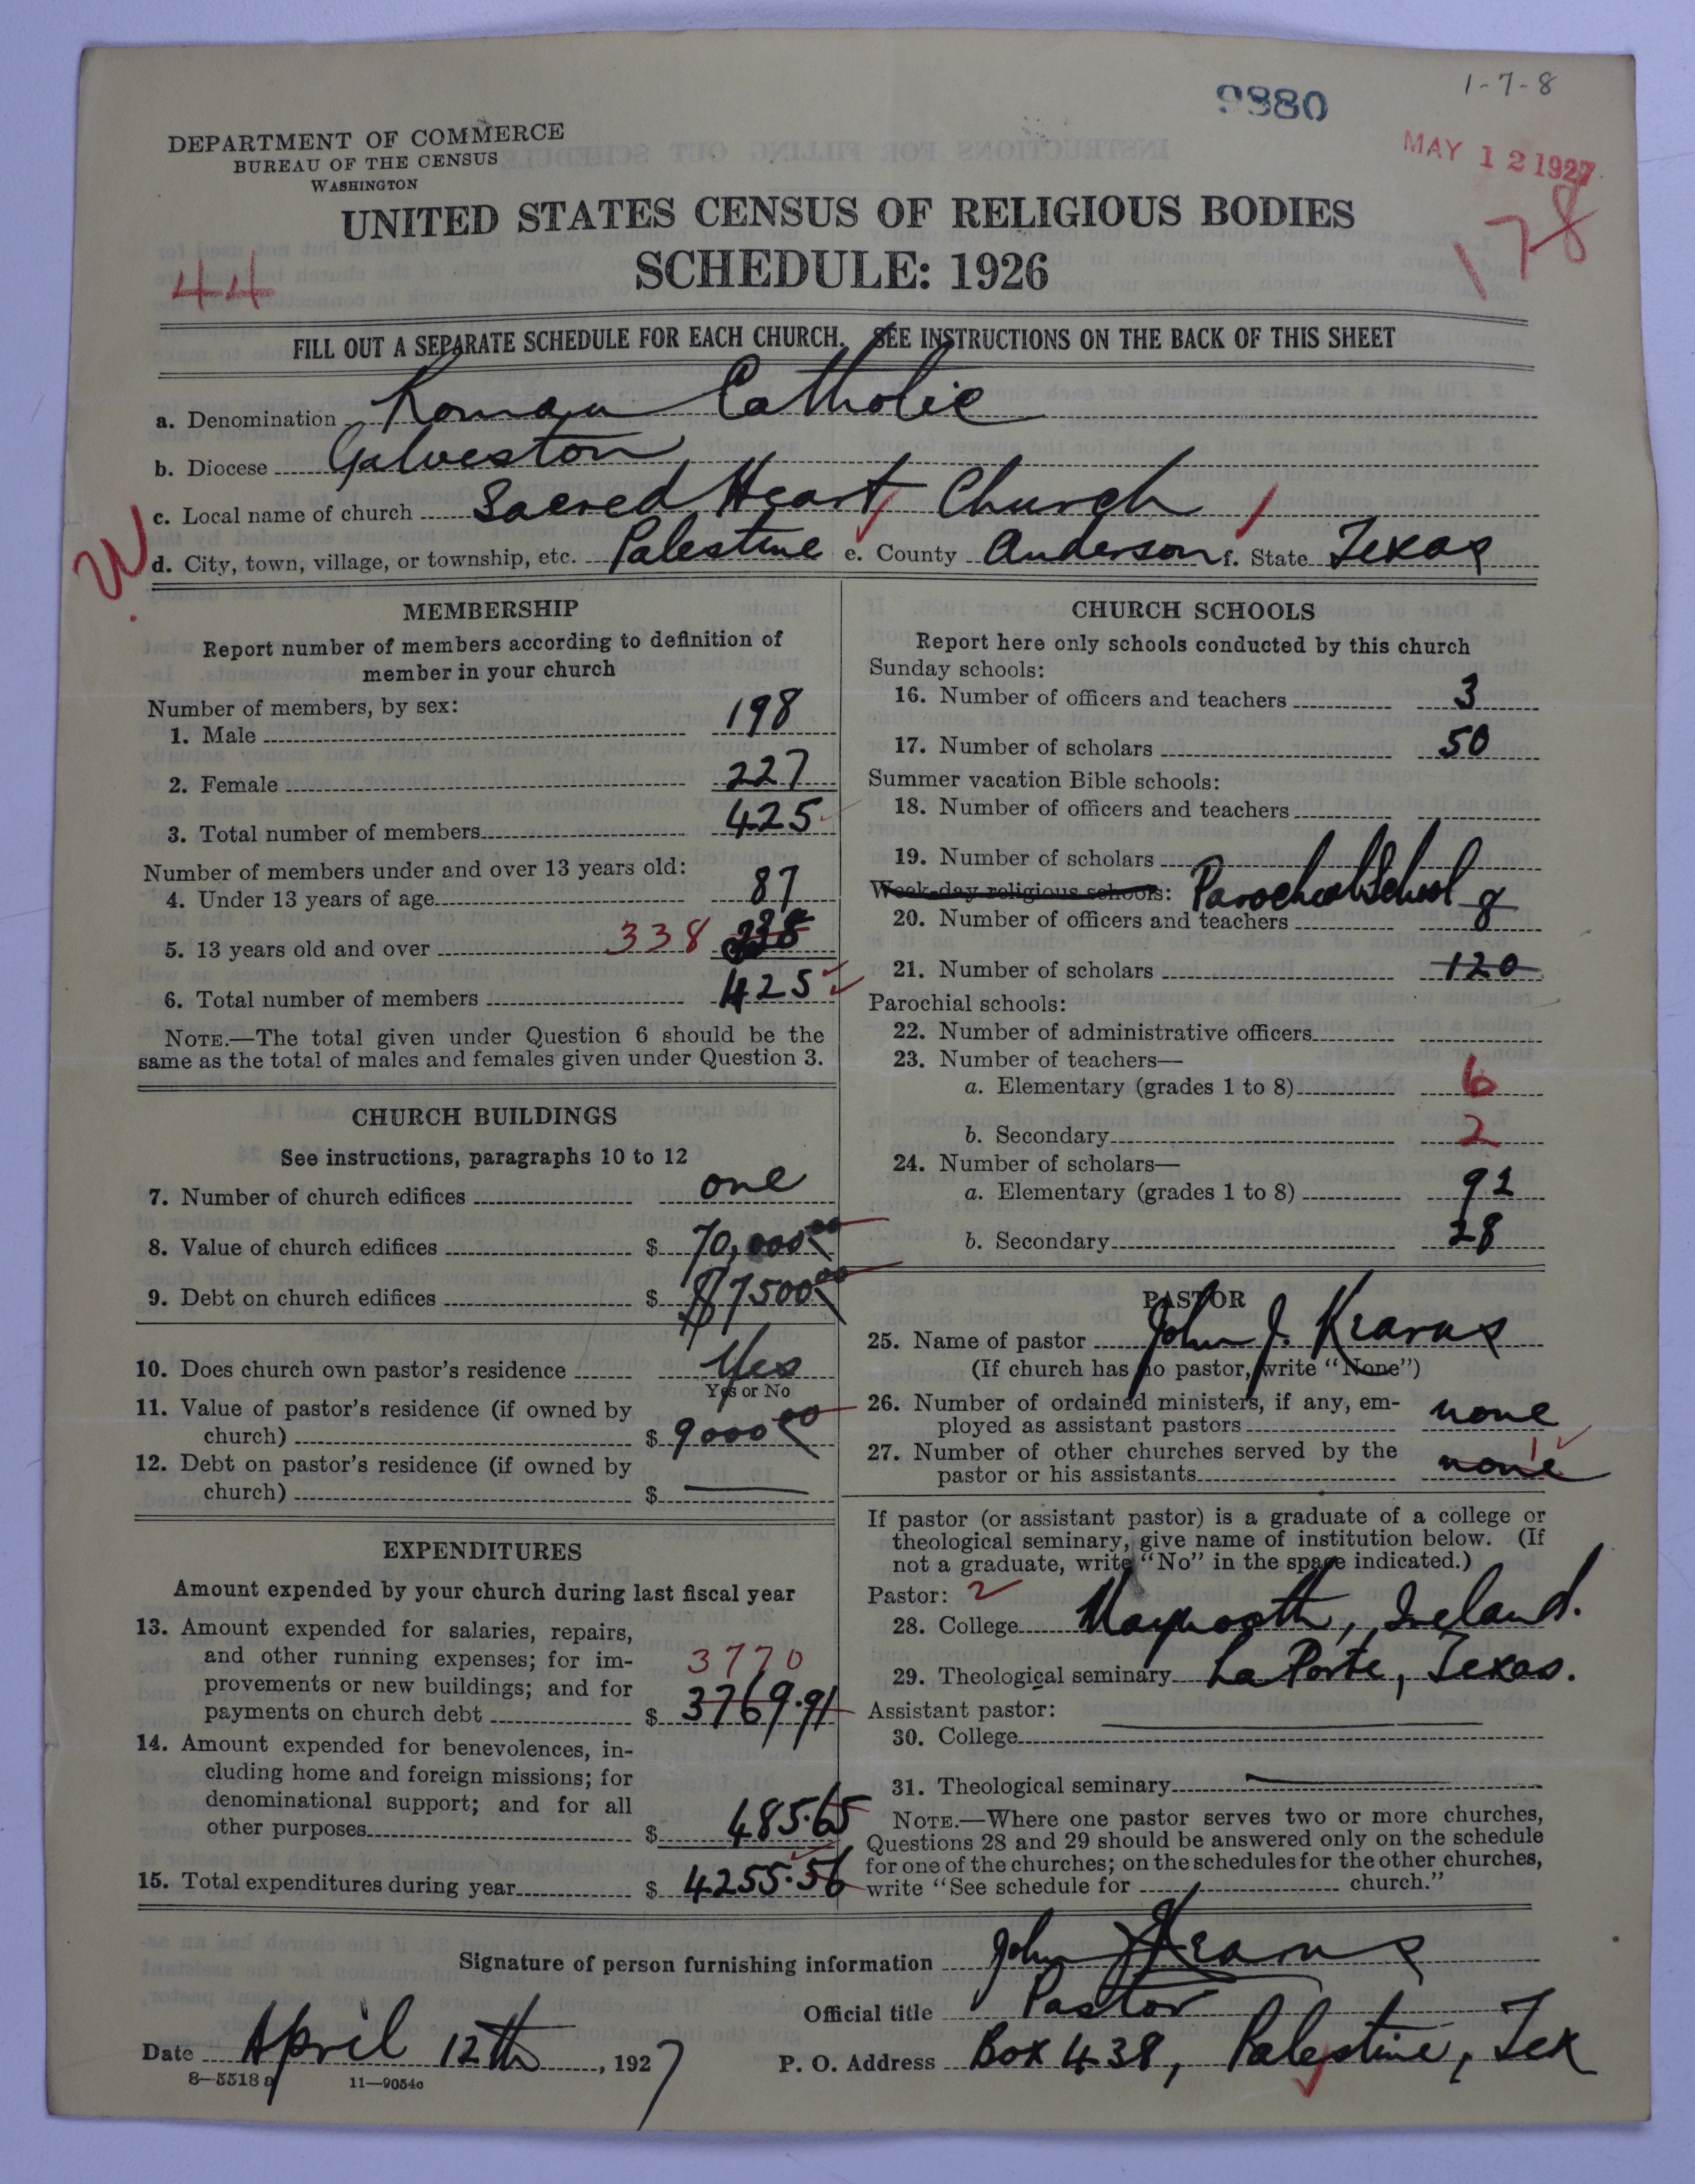 9880
1-7-8
DEPARTMENT OF COMMERCE
BUREAU OF THE CENSUS
WASHINGTON
MAY 12 1927
178
UNITED STATES CENSUS OF RELIGIOUS BODIES
SCHEDULE: 1926
44
FILL OUT A SEPARATE SCHEDULE FOR EACH CHURCH. SEE INSTRUCTIONS ON THE BACK OF THIS SHEET
a. Denomination Roman Catholic
b. Diocese Galveston
c. Local name of church Sacred Heart Church
W
d. City, town, village, or township, etc. Palestine e. County Anderson f. State Texas
MEMBERSHIP
Report number of members according to definition of
member in your church
Number of members, by sex:
1. Male 198
2. Female 227
3. Total number of members 425
Number of members under and over 13 years old:
4. Under 13 years of age 87
5. 13 years old and over 338
6. Total number of members 425
NOTE.—The total given under Question 6 should be the
same as the total of males and females given under Question 3.
CHURCH BUILDINGS
See instructions, paragraphs 10 to 12
7. Number of church edifices one
8. Value of church edifices $ 70,000 00
9. Debt on church edifices $ $7500 00
10. Does church own pastor's residence Yes
Yes or No
11. Value of pastor's residence (if owned by
church) $ 9000 00
12. Debt on pastor's residence (if owned by
church) $ —
EXPENDITURES
Amount expended by your church during last fiscal year
13. Amount expended for salaries, repairs,
and other running expenses; for im-
3770
provements or new buildings; and for
payments on church debt $ 3769.91
14. Amount expended for benevolences, in-
cluding home and foreign missions; for
denominational support; and for all
other purposes $ 485.65
15. Total expenditures during year $ 4255.56
CHURCH SCHOOLS
Report here only schools conducted by this church
Sunday schools:
16. Number of officers and teachers 3
17. Number of scholars 50
Summer vacation Bible schools:
18. Number of officers and teachers
19. Number of scholars
Week-day religious schools: Parochial School
20. Number of officers and teachers 8
21. Number of scholars 120
Parochial schools:
22. Number of administrative officers
23. Number of teachers—
a. Elementary (grades 1 to 8) 6
b. Secondary 2
24. Number of scholars—
a. Elementary (grades 1 to 8) 92
b. Secondary 28
PASTOR
25. Name of pastor John J. Kearns
(If church has no pastor, write "None")
26. Number of ordained ministers, if any, em-
ployed as assistant pastors none
27. Number of other churches served by the
1
pastor or his assistants none
If pastor (or assistant pastor) is a graduate of a college or
theological seminary, give name of institution below. (If
not a graduate, write "No" in the space indicated.)
Pastor: 2
28. College Maynooth, Ireland.
29. Theological seminary La Porte, Texas.
Assistant pastor:
30. College —
31. Theological seminary —
NOTE.—Where one pastor serves two or more churches,
Questions 28 and 29 should be answered only on the schedule
for one of the churches; on the schedules for the other churches,
write "See schedule for church."
Signature of person furnishing information John J Kearns
Official title Pastor
Date April 12th, 1927
P. O. Address Box 438, Palestine, Tex
8—5518 a 11—9054c